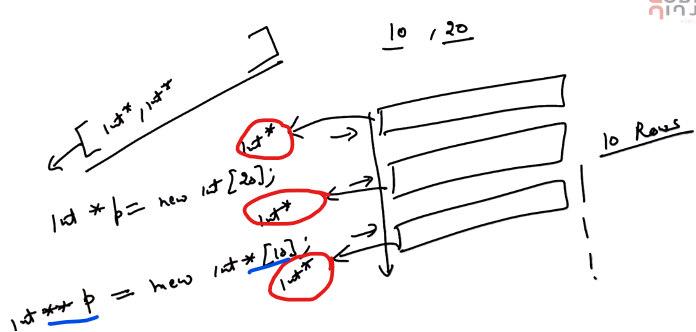 10 , 20
int*, int*
int*
10 Rows
int * p = new int [20];
int*
int ** p = new int * [10];
int*